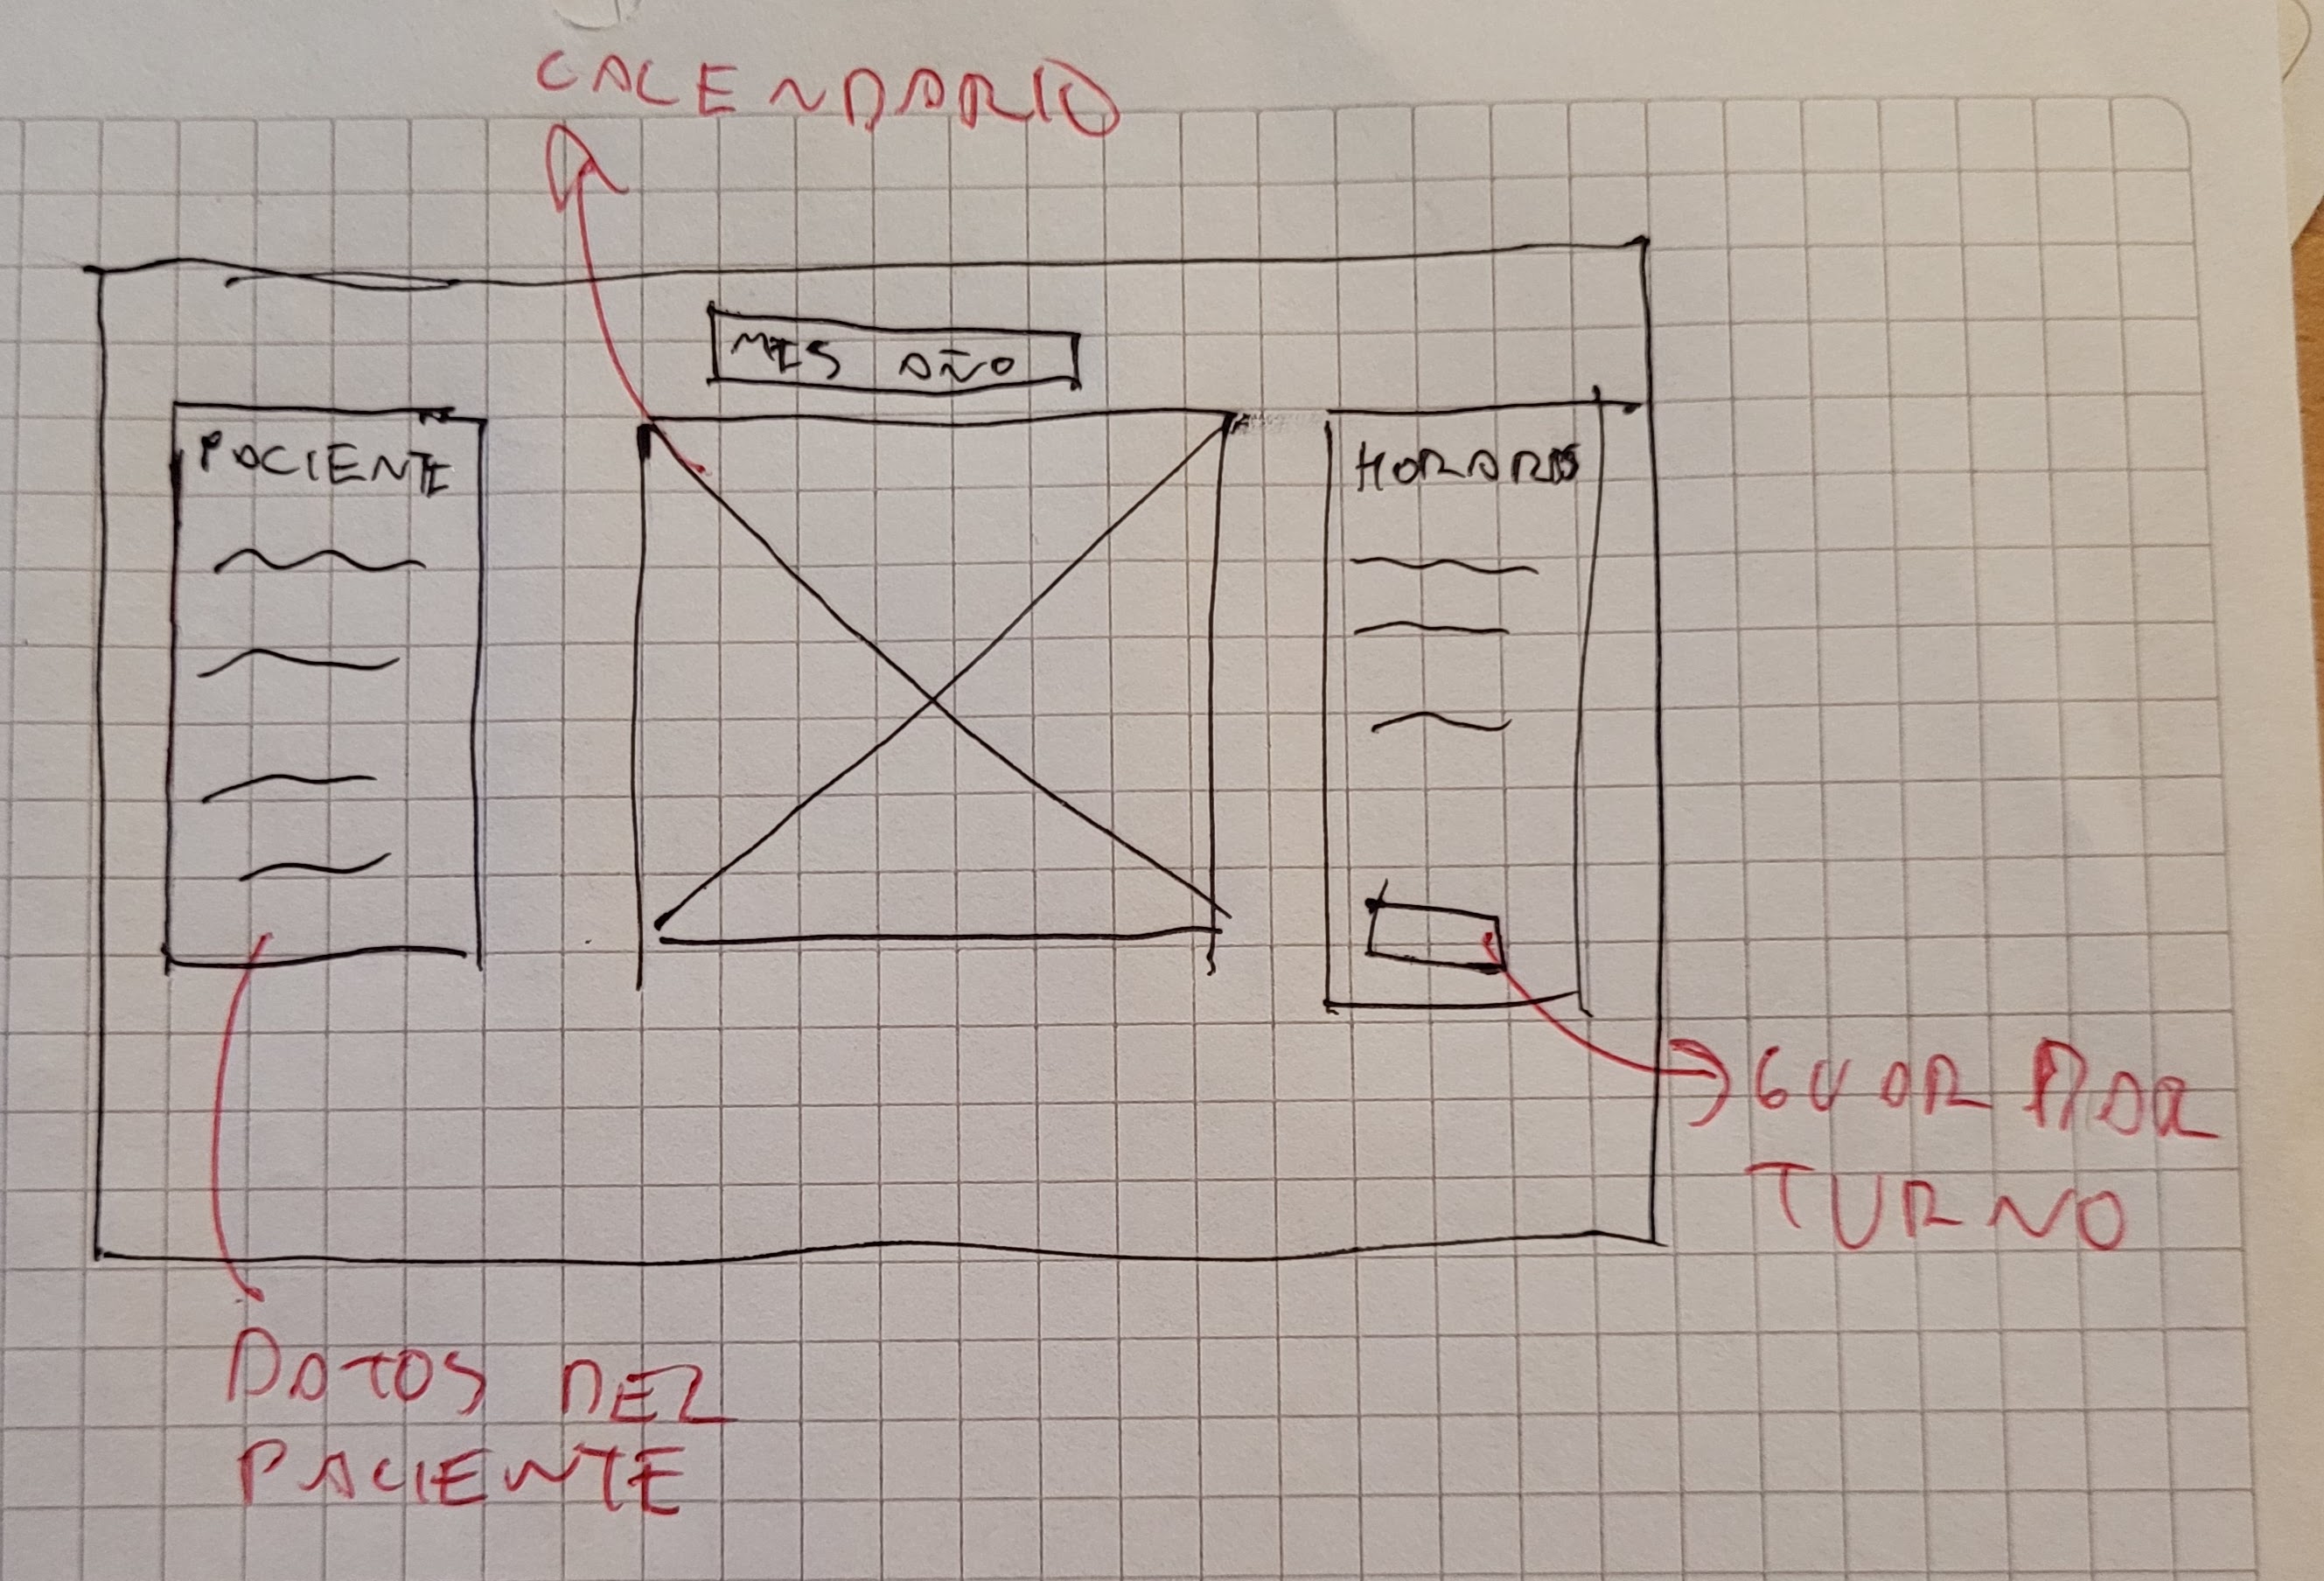 CALENDARIO
MES AÑO
PACIENTE
HORARIOS
GUARDAR
TURNO
DATOS DEL
PACIENTE